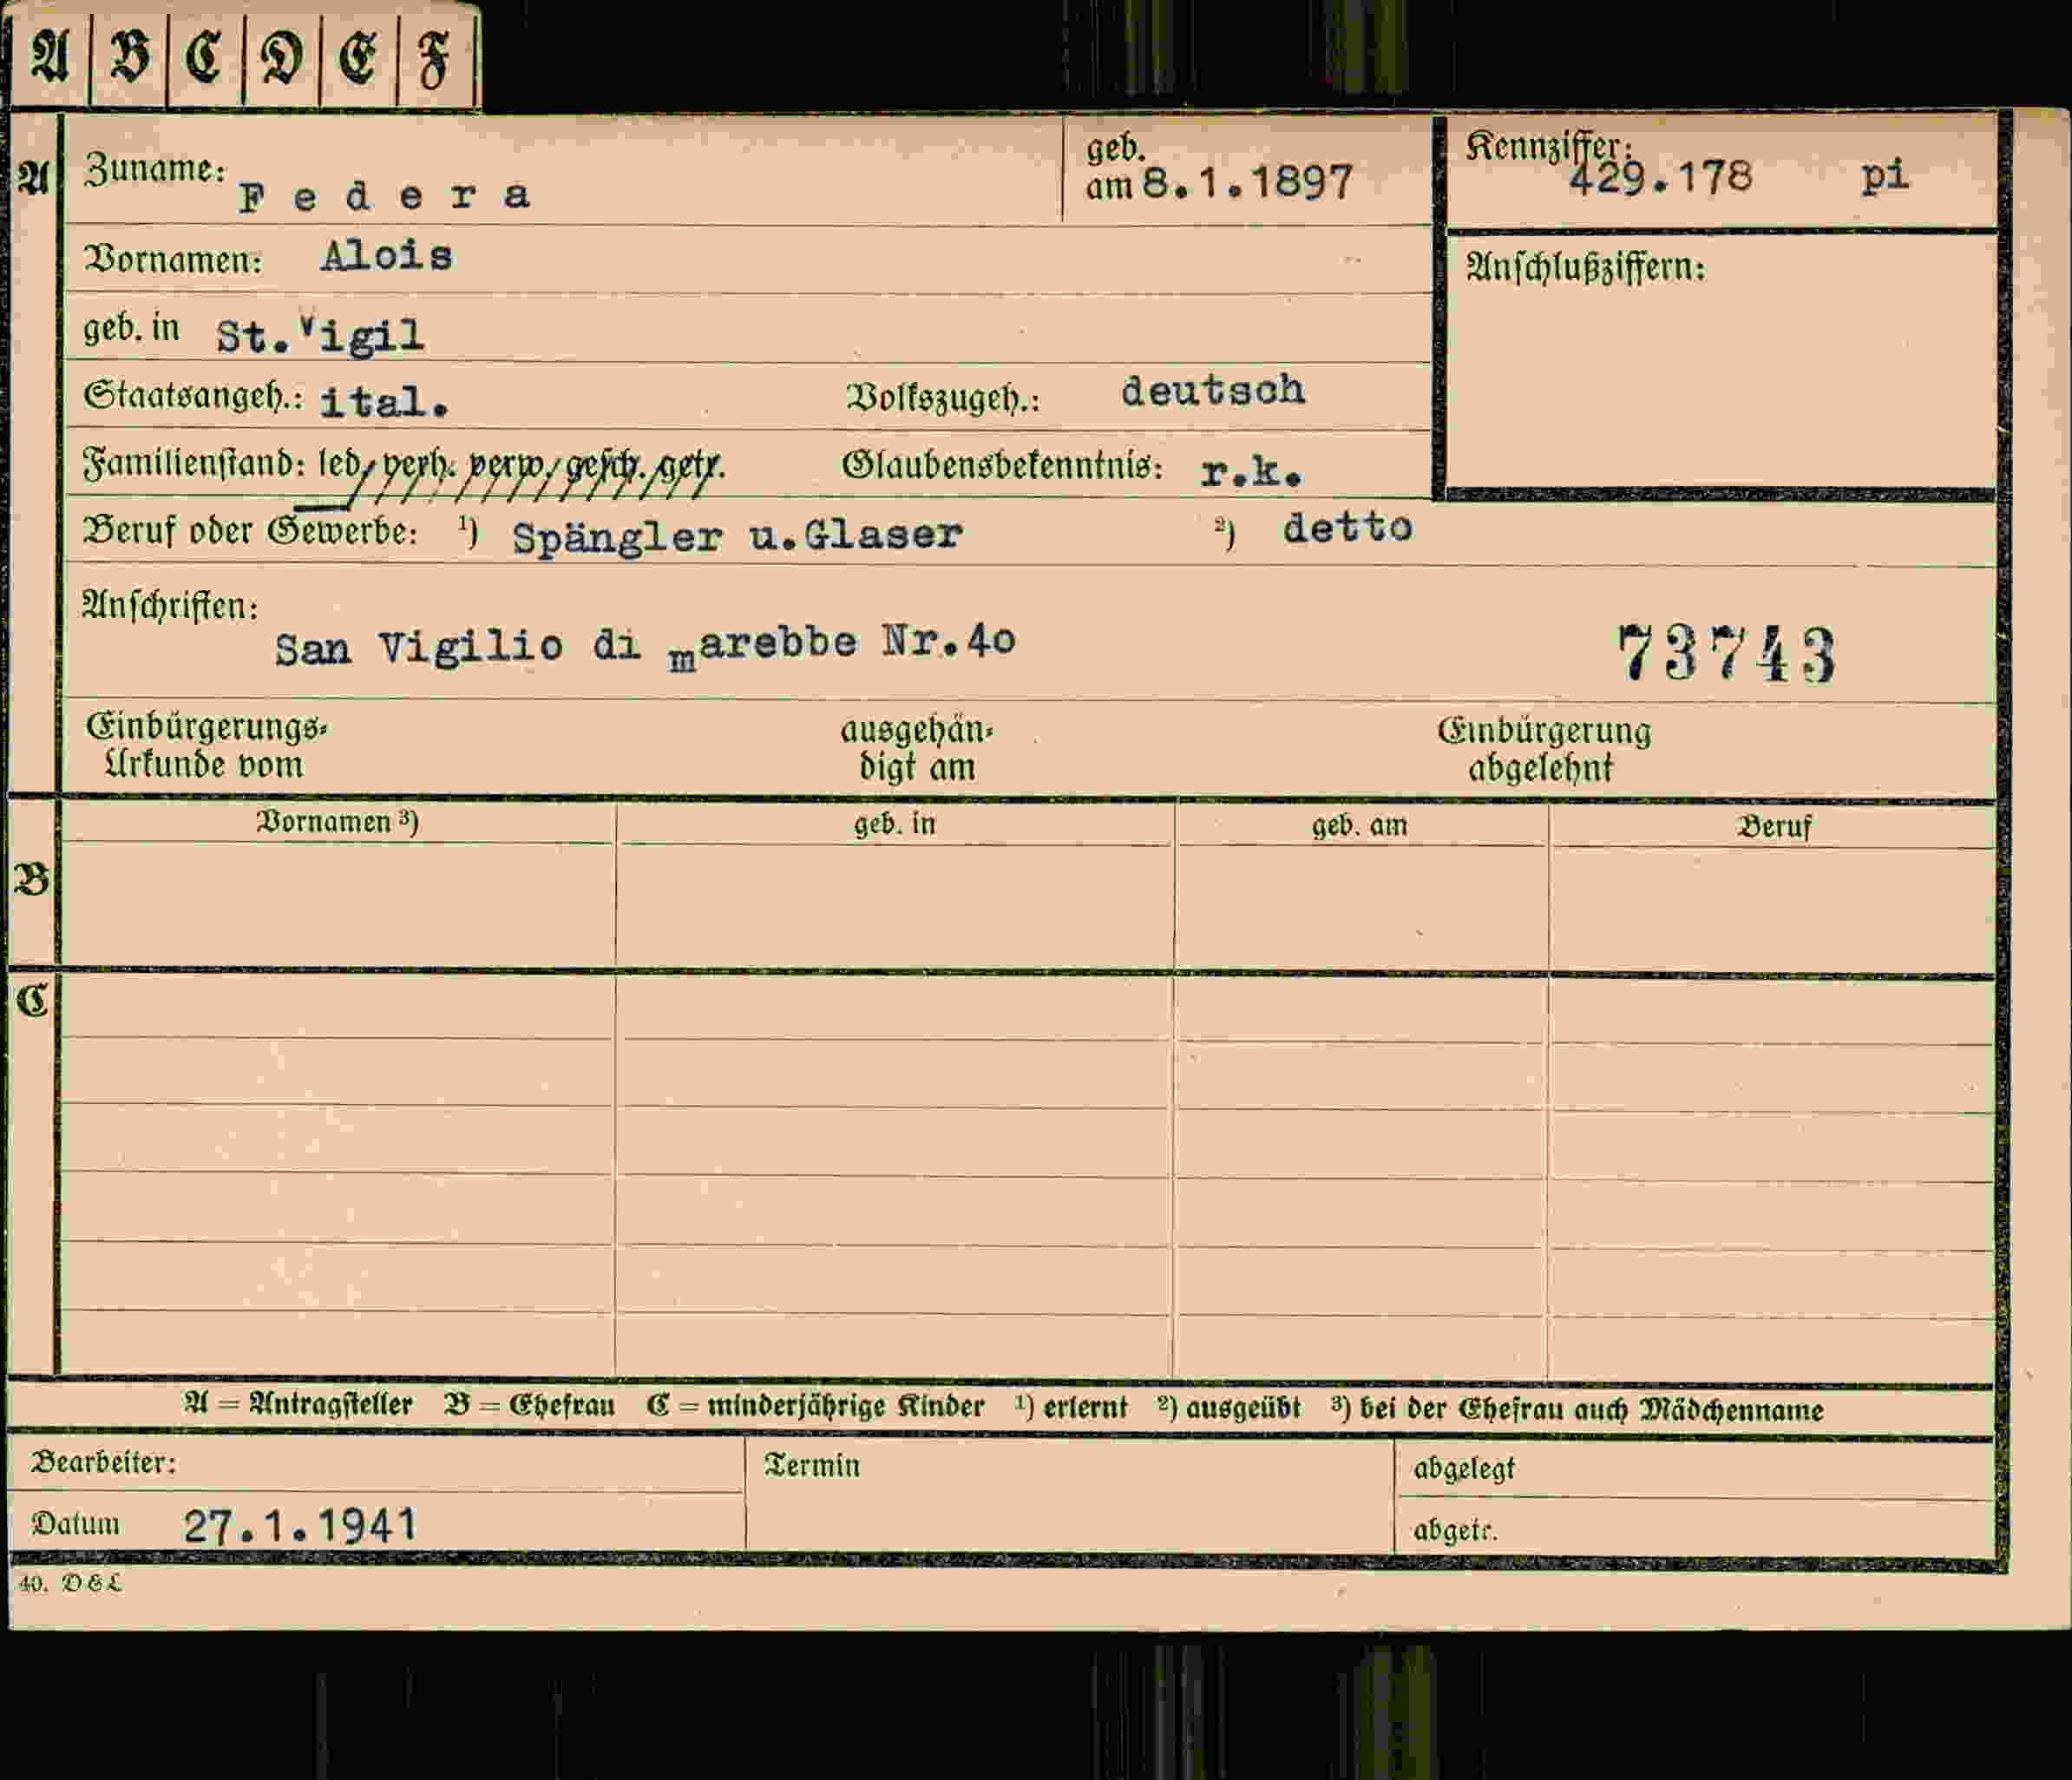 A B C D E F
A Zuname: Federa geb. am 8.1.1897 Kennziffer: 429.178 pi
Vornamen: Alois Anschlußziffern:
geb. in St.Vigil
Staatsangeh.: ital. Volkszugeh.: deutsch
Familienstand: led, verh. verw. gesch. getr. Glaubensbekenntnis: r.k.
Beruf oder Gewerbe: ¹) Spängler u.Glaser ²) detto
Anschriften:
San Vigilio di marebbe Nr.40 73743
Einbürgerungs- ausgehän- Einbürgerung
Urkunde vom digt am abgelehnt
Vornamen ³) geb. in geb. am Beruf
B
C
A = Antragsteller B = Ehefrau C = minderjährige Kinder ¹) erlernt ²) ausgeübt ³) bei der Ehefrau auch Mädchenname
Bearbeiter: Termin abgelegt
Datum 27.1.1941 abgetr.
40. D&L